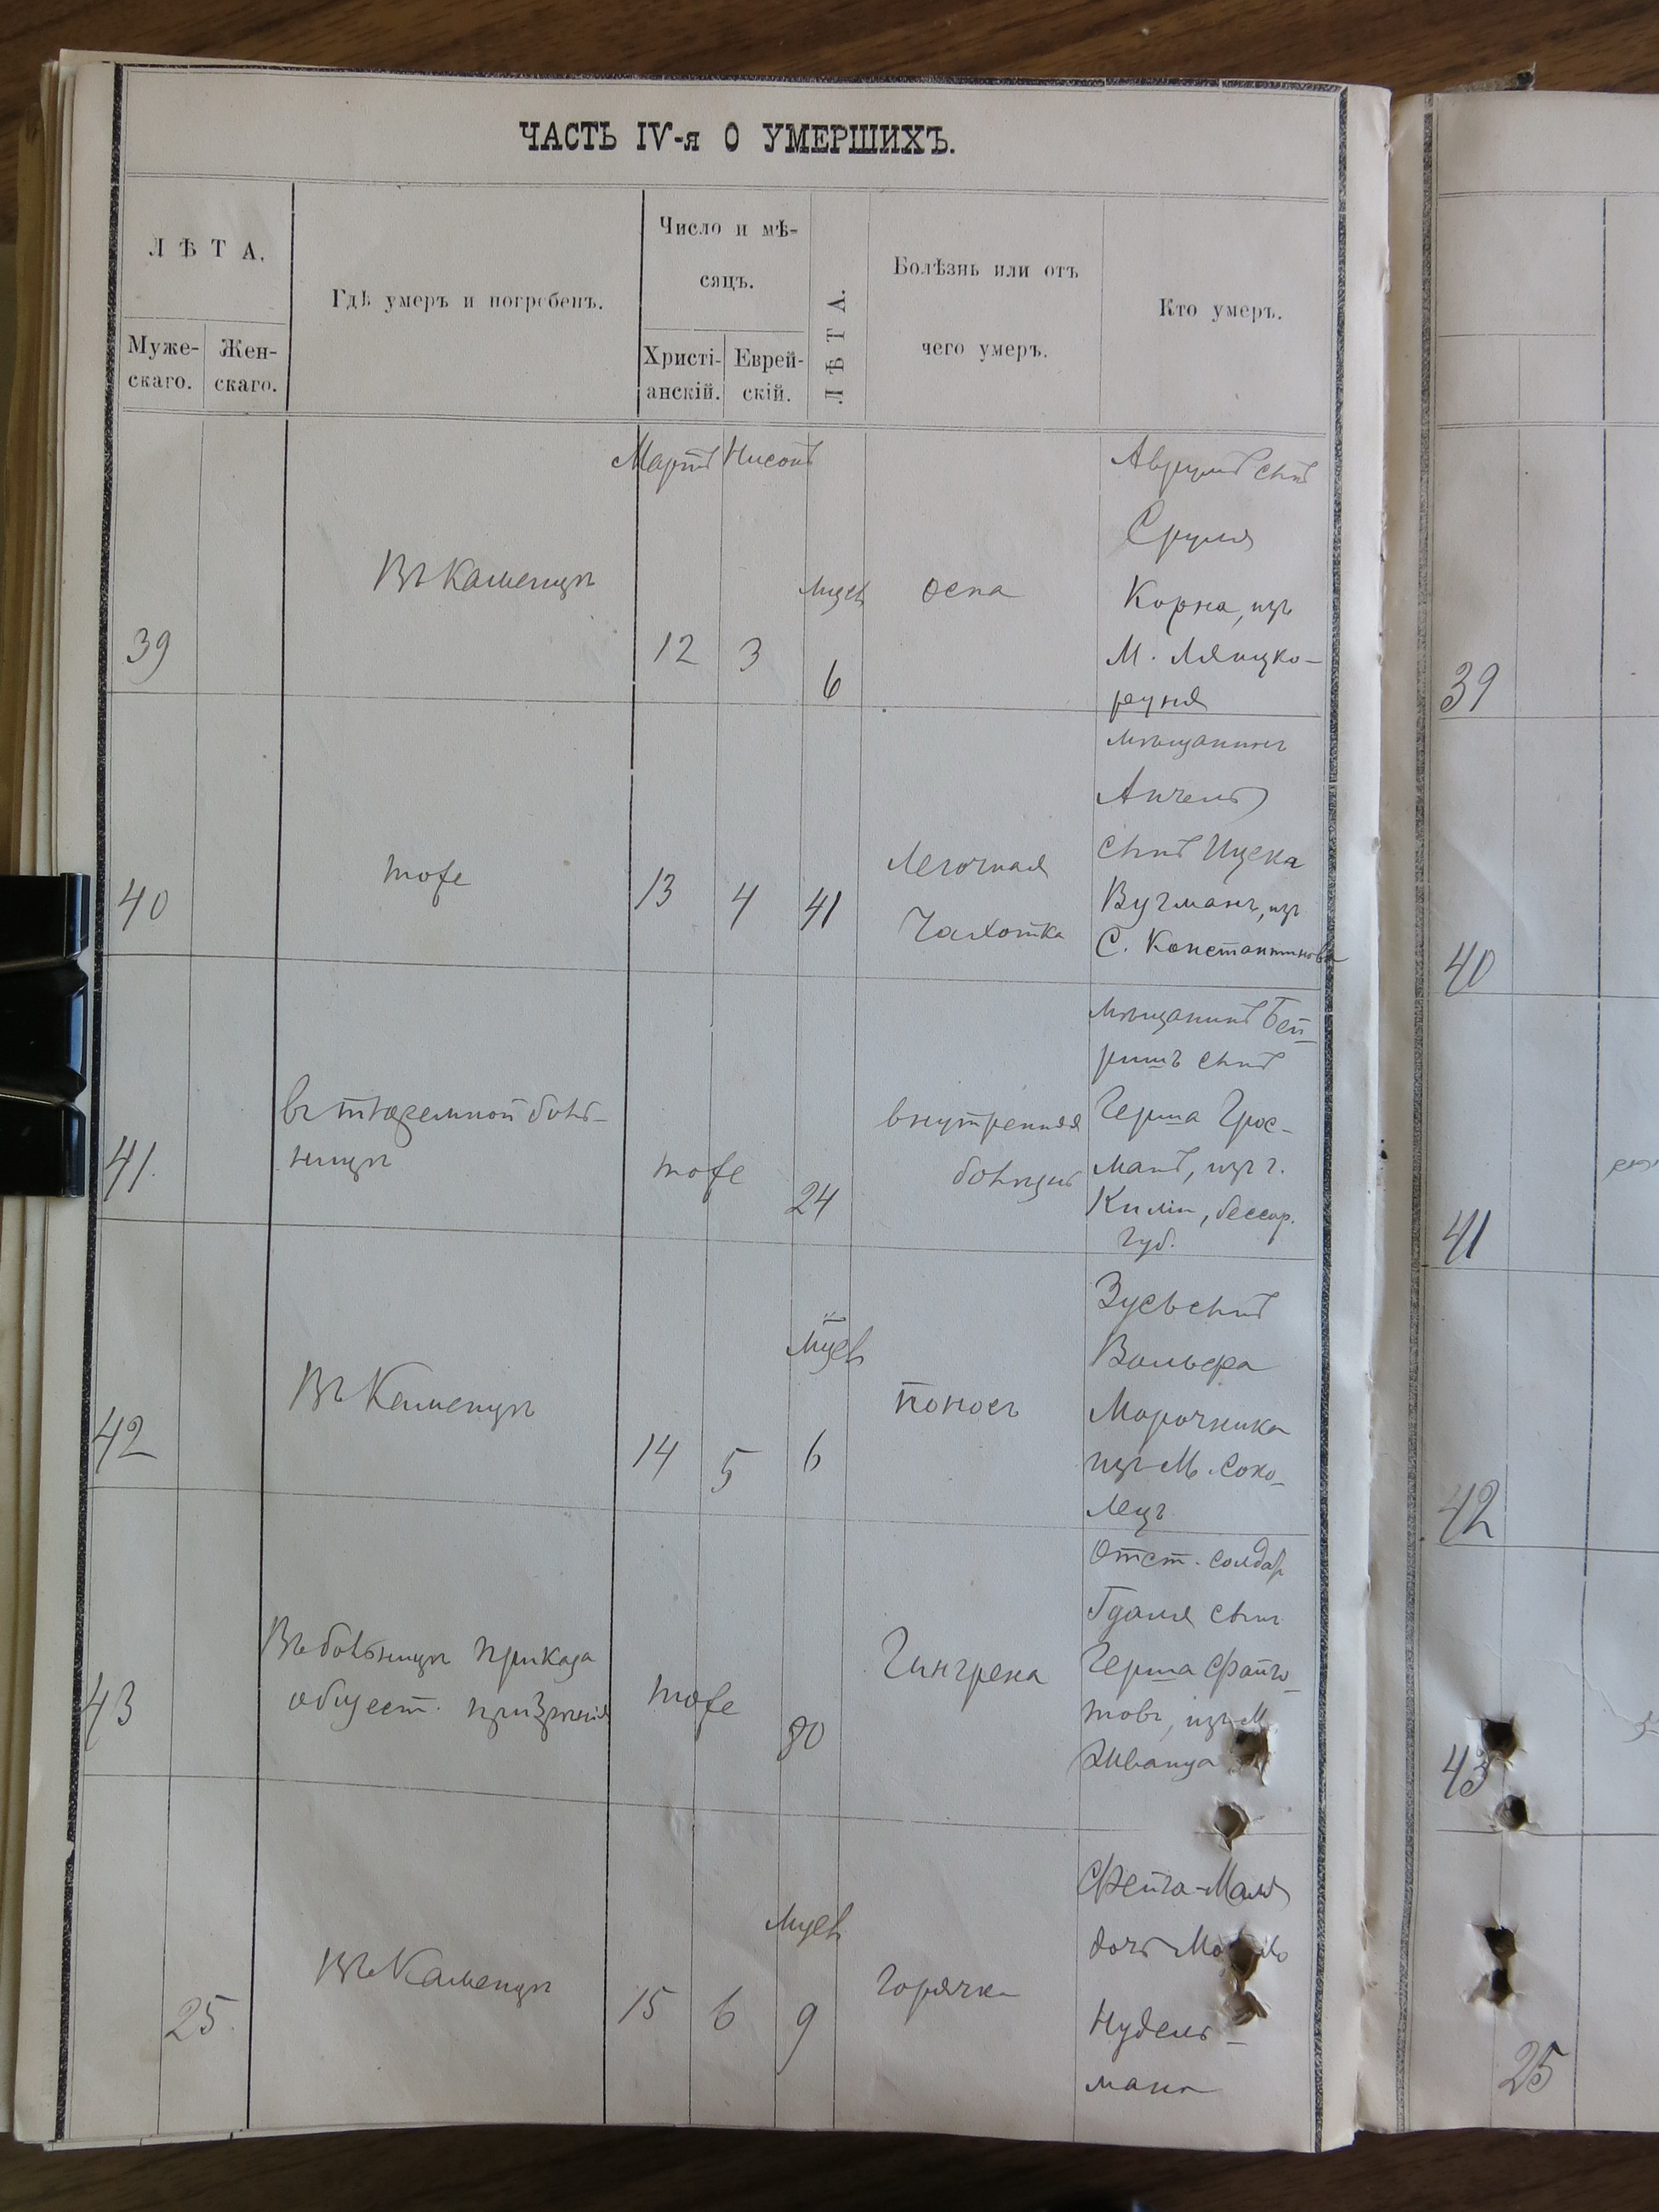 ЧАСТЬ IV-я О УМЕРШИХЪ.
ЛѢТА.
Муже-
скаго.
Жен-
скаго.
Гдѣ умеръ и погребенъ.
Число и мѣ-
сяцъ.
Христі-
анскій.
Еврей-
скій.
ЛѢТА.
Болѣзнь или отъ
чего умеръ.
Кто умеръ.
Мартъ Нисонъ
39
Въ Каменцѣ
12
3
мцев
6
оспа
Аврумъ сынъ
Сруля
Корна, изъ
М. Лянцко-
руня
40
тоже
13
4
41
Легочная
Чахотка
мѣщанинъ
Анчель
сынъ Ицека
Вугманъ, изъ
С. Константинова
41.
въ тюремной боль-
ницѣ
тоже
24
внутренняя
болѣзнь
мѣщанинъ Бей-
ришъ сынъ
Герша Грос-
манъ, изъ г.
Киліи, бессар.
губ.
42
Въ Каменцѣ
14
5
мцев
6
поносъ
Зусь сынъ
Вольфа
Морочника
изъ М. Соко-
лецъ
43
Въ больницѣ приказа
общест. призрѣнія
тоже
80
Гингрена
Отст. солдат
Гдаля сынъ
Герша Файго-
товъ, изъ М.
Жванца
25
Въ Каменцѣ
15
6
мцев
9
горячка
Фейга-Маля
дочь
Нудель-
мана
39
40
41
42
43
25